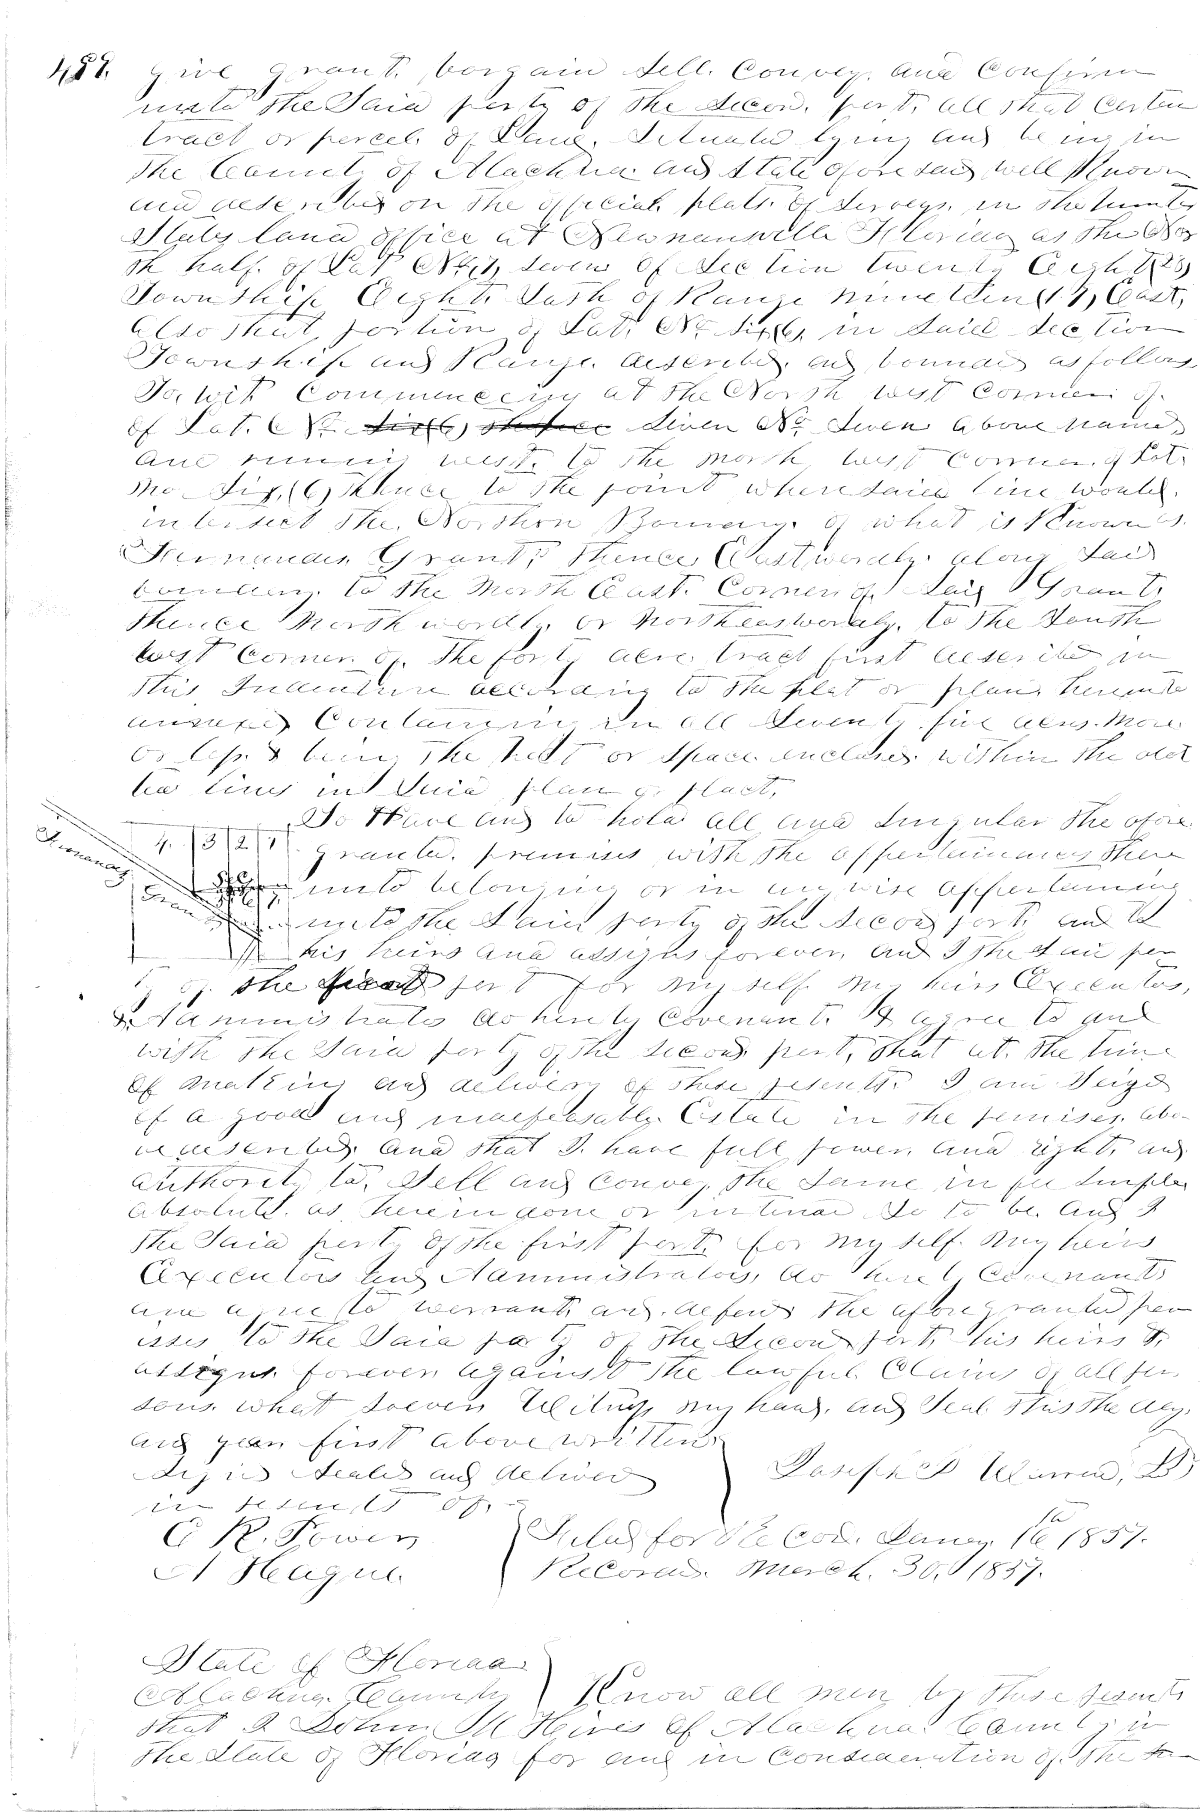 give grant, bargain Sell. Convey. and Confirm
unto the Said party of the Secon. part, all that Certin
tract or parcel of Land. Situated lying and being in
the County of Alachua and State aforesaid well Known
and described on the official plats of Surveys in the United
States land office at Newnansville Florida as the Nor
th half. of Lot No (7) Seven of Section twenty Eight (28)
Township Eight South of Range nineteen (19) East,
also that, portion of Lot. No Six (6) in Said Section
Township and Range. described. and bounded as follows
To, wit Commencing at the North west Corner of.
of Lot. No Seven No Seven above named
and running west. to the north west Corner of Lot.
No Six, (6) thence to the point where said line would.
intersect the. Northern Boundary. of what is Known as.
Fernandas Grant, thence Eastwardly. along Said
boundary. to the North East. Corner of. Said Grant.
thence Northwardly. or Northeastwardly. to the South
west Corner. of. the forty acre. tract first described in
this Indenture according to the plat or plan hereunto
annexed Containing in all Seventy five acres. More
or less. & being the. or space. enclosed. within the
lines in Said plan or platt,
To Have and to hold all and Singular the afore
granted. premises with the appertainances there
unto belonging or in any wise appertaining
unto the Said party of the Second part. and to
his heirs and assigns forever, and I the Said par
ty of. the part for my self. my heirs Executors,
& Administrators do hereby Covenant. & agree to and
with the Said party of the Second. part, that at. the time
of making and delivery of these presents. I am Seized
of a good and indefeasable. Estate in the premises. abo
ve described. and that I. have full power. and right. and
authority to, Sell and Convey. the Same in fee Simple
absolute. as herein done or intended So to be. And I
the Said party of the first part. for my self. my heirs
Executors and Administrators, do hereby Covenant
and agree to warrant. and. defend the afore granted prem
isses to the Said party of the Second part, his heirs &
assigns. forever. against the lawful. Claims of all per
sons. what soever. Witness my hand. and Seal this the day.
and year first above written
Signed Sealed and delivered
in presents of.
Joseph S
C R. Powers
A Hague.
Filed for Record. Januy. 16th 1857.
Recorded. March. 30, 1857.
4. 3 2 1
Fernandas
Grant
State of Florida
Alachua. County
Know all men by these presents
that I John M Hines of Alachua County in
the State of Florida for and in Consideration of. the